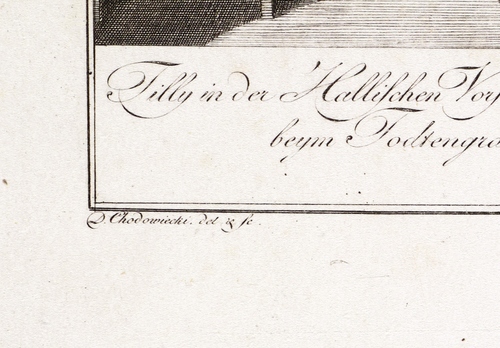 Tilly in der Halliſchen Vorſ
beym Todtengrä
D. Chodowiecki. del & ſc.